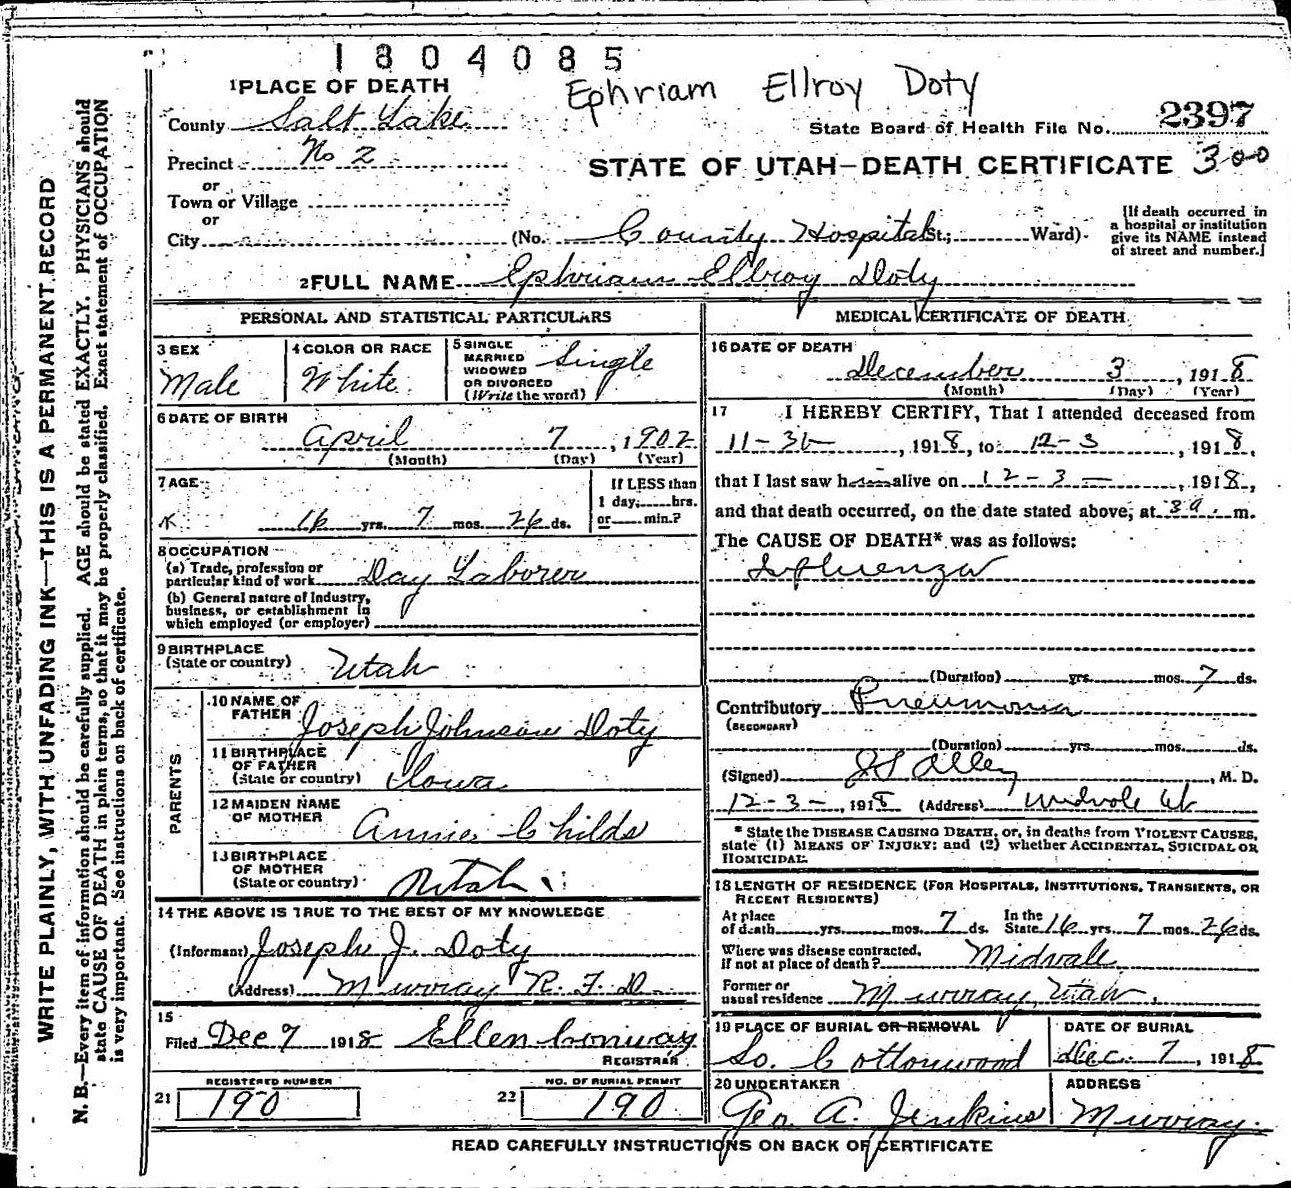 1804085
Ephriam Ellroy Doty
1 PLACE OF DEATH
County Salt Lake
State Board of Health File No. 2397
Precinct No 2
STATE OF UTAH—DEATH CERTIFICATE 300
or
Town or Village
or
City (No. County Hospital St.; Ward)
[If death occurred in
a hospital or institution
give its NAME instead
of street and number.]
2 FULL NAME Ephriam Ellroy Doty
PERSONAL AND STATISTICAL PARTICULARS
3 SEX
Male
4 COLOR OR RACE
White
5 SINGLE
MARRIED
WIDOWED
OR DIVORCED
(Write the word)
Single
6 DATE OF BIRTH
April 7, 1902
(Month) (Day) (Year)
7 AGE
16 yrs. 7 mos. 26 ds.
If LESS than
1 day, hrs.
or min.?
8 OCCUPATION
(a) Trade, profession or
particular kind of work Day Laborer
(b) General nature of Industry,
business, or establishment in
which employed (or employer)
9 BIRTHPLACE
(State or country) Utah
PARENTS
10 NAME OF
FATHER Joseph Johnson Doty
11 BIRTHPLACE
OF FATHER
(State or country) Iowa
12 MAIDEN NAME
OF MOTHER Annie Childs
13 BIRTHPLACE
OF MOTHER
(State or country) Utah
14 THE ABOVE IS TRUE TO THE BEST OF MY KNOWLEDGE
(Informant) Joseph J. Doty
(Address) Murray R. F. D.
15
Filed Dec 7 1918 Ellen Conway
REGISTRAR
REGISTERED NUMBER
21 190
NO. OF BURIAL PERMIT
22 190
MEDICAL CERTIFICATE OF DEATH
16 DATE OF DEATH
December 3, 1918
(Month) (Day) (Year)
17 I HEREBY CERTIFY, That I attended deceased from
11-30, 1918, to 12-3, 1918,
that I last saw h alive on 12-3-, 1918,
and that death occurred, on the date stated above, at 3 a. m.
The CAUSE OF DEATH* was as follows:
Influenza
(Duration) yrs. mos. 7 ds.
Contributory Pneumonia
(SECONDARY)
(Duration) yrs. mos. ds.
(Signed) Alley, M. D.
12-3-, 1918 (Address) Midvale Ut
* State the DISEASE CAUSING DEATH, or, in deaths from VIOLENT CAUSES,
state (1) MEANS OF INJURY; and (2) whether ACCIDENTAL, SUICIDAL OR
HOMICIDAL.
18 LENGTH OF RESIDENCE (FOR HOSPITALS, INSTITUTIONS, TRANSIENTS, OR
RECENT RESIDENTS)
At place
of death yrs. mos. 7 ds. In the
State 16 yrs. 7 mos. 26 ds.
Where was disease contracted,
if not at place of death? Midvale
Former or
usual residence Murray, Utah.
19 PLACE OF BURIAL OR REMOVAL
So. Cottonwood
DATE OF BURIAL
Dec. 7, 1918
20 UNDERTAKER
Geo. A. Jenkins
ADDRESS
Murray.
READ CAREFULLY INSTRUCTIONS ON BACK OF CERTIFICATE
WRITE PLAINLY, WITH UNFADING INK—THIS IS A PERMANENT RECORD
N. B.—Every item of information should be carefully supplied. AGE should be stated EXACTLY. PHYSICIANS should
state CAUSE OF DEATH in plain terms, so that it may be properly classified. Exact statement of OCCUPATION
is very important. See instructions on back of certificate.